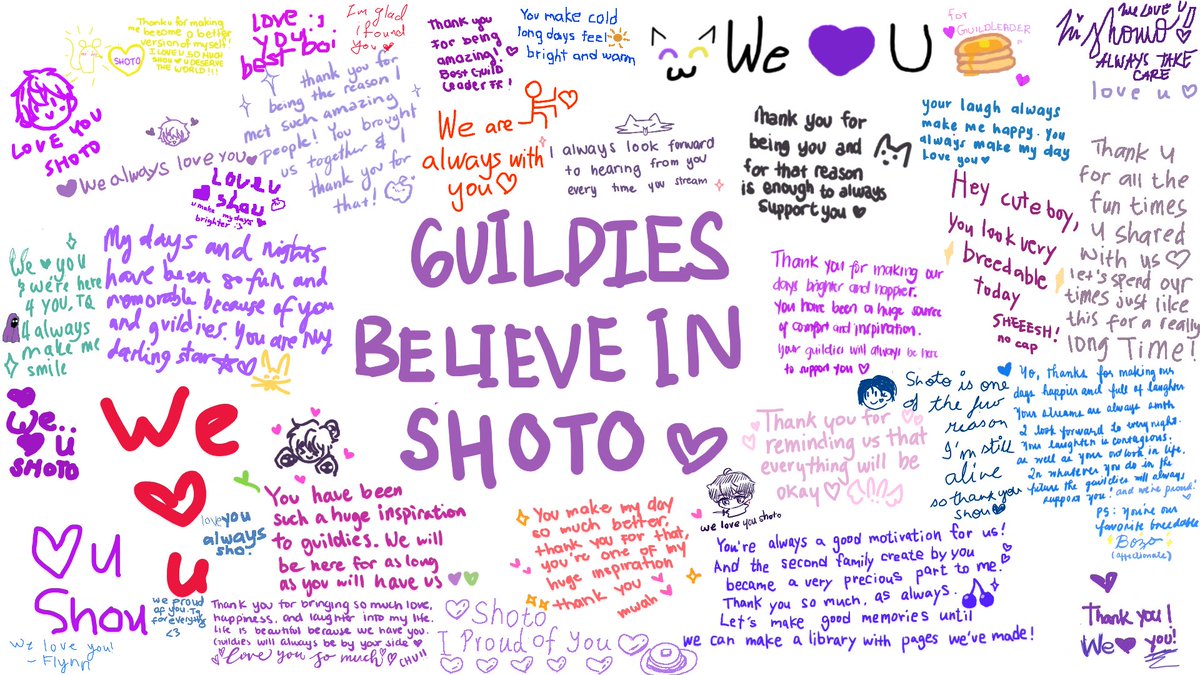 Thanku for making
me become a better
version of myself!
I LOVE U SO HUGH
SHOU ♥ U DESERVE
THE WORLD!!!
SHOTO
LOVE
YOU
SHOTO
LOVE :3
YOU..
best boi
I'm glad
I found
you
Thank you
for being
amazing!
Best Guild
Leader FR!
You make cold
long days feel
bright and warm
We ♥ U
for
GUILDLEADER
WE LOVE U
Hi Showo
ALWAYS TAKE
CARE
love u ♡
thank you for
being the reason I
met such amazing
people! You brought
us together & I
thank you for
that!
We always love you
LOVE U
shou
u make my days
brighter :3
We are
always with
you ♡
I always look forward
to hearing from you
every time you stream
Thank you for
being you and
for that reason
is enough to always
support you ♥
your laugh always
make me happy. you
always make my day
Love you ♥
Thank U
for all the
fun times
U shared
with us ♡
let's spend our
times just like
this for a really
long Time!
Hey cute boy,
you look very
breedable
today
SHEEESH!
no cap
GUILDIES
BELIEVE IN
SHOTO ♡
We ♥ you
& we're here
4 you, TQ
4 always
make me
smile
My days and nights
have been so fun and
memorable because of you
and guildies. You are my
darling star ★ ♡
Thank you for making our
days brighter and happier.
You have been a huge source
of comfort and inspiration.
Your guildies will always be here
to support you ♡
We..
♥ U
SHOTO
We
♡
u
Shoto is one
of the few
reason
I'm still
alive
so thank you
shou ♥
Yo, thanks for making our
days happier and full of laughter
Your streams are always smth
I look forward to every night.
Your laughter is contagious.
as well as your outlook in life.
In whatever you do in the
future the guildies will always
support you! and we're proud!
PS: you're our
favorite breedable
Bozo
(affectionate)
Thank you for
reminding us that
everything will be
okay ♡
we love you shoto
love you
always
sho!
You have been
such a huge inspiration
to guildies. We will
be here for as long
as you will have us
You make my day
so much better,
thank you for that,
you're one of my
huge inspiration
thank you
mwah
You're always a good motivation for us!
And the second family create by you
became a very precious part to me!
Thank you so much, as always.
Let's make good memories until
we can make a library with pages we've made!
♡ U
Shou
we love you!
- Flynn
we proud
of you. TQ
for everything
<3
Thank you for bringing so much love,
happiness, and laughter into my life.
Life is beautiful because we have you.
Guildies will always be by your side ♥
♡ Love you so much ♡ CHU!!
Shoto
I Proud of You
Thank you!
We ♥ you!